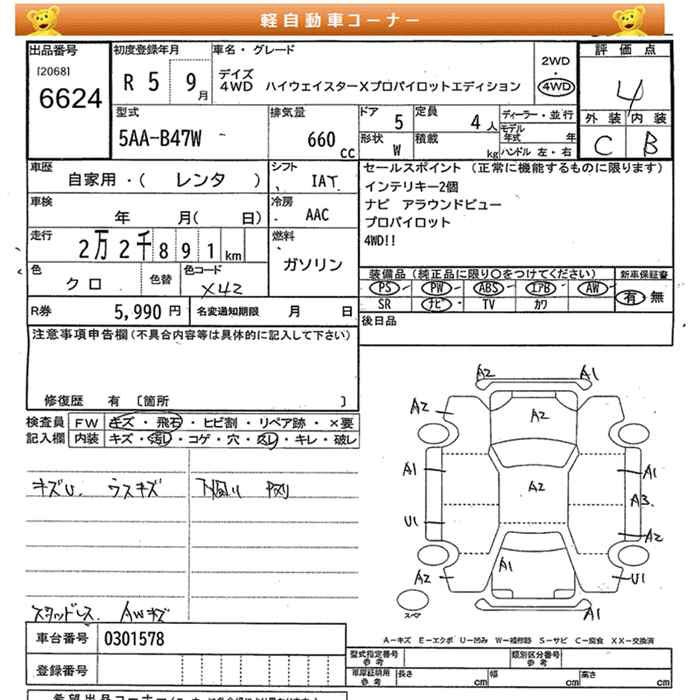 軽自動車コーナー
出品番号 初度登録年月 車名・グレード 2WD 4WD 評価点
[2068] 6624 R 5 9月 デイズ 4
4WD ハイウェイスターXプロパイロットエディション
外装 内装
C B
型式 排気量 ドア 定員 ディーラー・並行
5AA-B47W 660 cc 5 4人 モデル年式 年
形状 W 積載 kg ハンドル 左・右
車歴 シフト セールスポイント (正常に機能するものに限ります)
自家用・( レンタ ) IAT インテリキー2個
車検 冷房 ナビ アラウンドビュー
年 月( 日) AAC プロパイロット
走行 燃料 4WD!!
2万2千891km ガソリン
色 色替 色コード 装備品(純正品に限り○をつけてください) 新車保証書
クロ X42 PS PW ABS エアB AW 有・無
SR ナビ TV カワ
R券 5,990円 名変通知期限 月 日 後日品
注意事項申告欄(不具合内容等は具体的に記入して下さい)
修復歴 有 [箇所 ]
検査員 FW キズ・飛石・ヒビ割・リペア跡・×要
記入欄 内装 キズ・汚レ・コゲ・穴・スレ・キレ・破レ
キズU. ウスキズ 下廻り
スタッドレス AWキズ
A2 A1
A2 A2
A1 A2 A1
A3
U1 A2
A2 A1 U1
スペア A1
A-キズ E-エクボ U-凹み W-補修跡 S-サビ C-腐食 XX-交換済
車台番号 0301578
型式指定番号 参考 類別区分番号 参考
登録番号
車庫証明用 参考 長さ cm 幅 cm 高さ cm